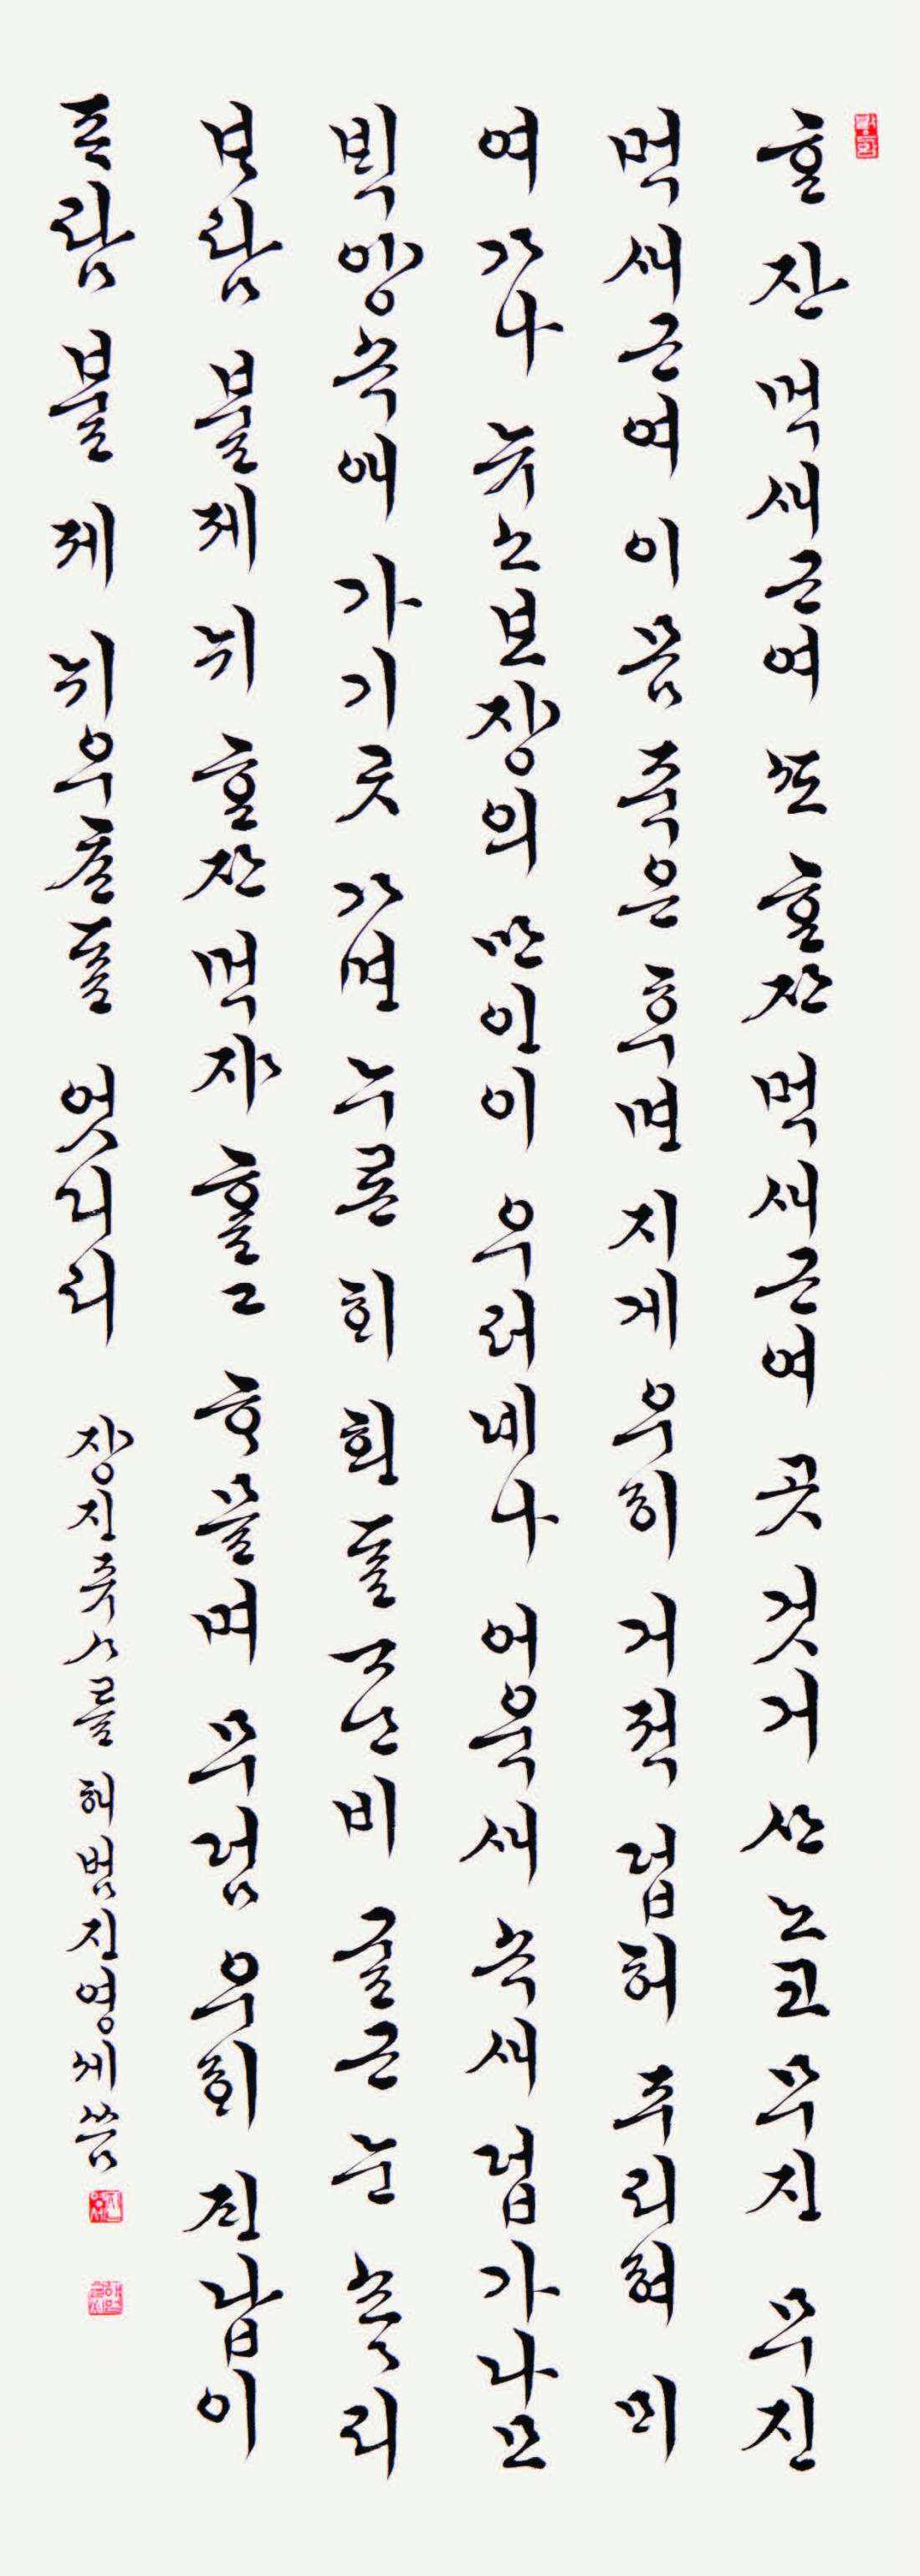 ᄒᆞᆫ 잔 먹새근여 ᄯᅩ ᄒᆞᆫ잔 먹새근여 곳 것거 산 노코 무진 무진
먹새근여 이 몸 죽은 후면 지게 우히 거적 덥허 주리혀 ᄆᆡ
여 가나 뉴소보장의 만인이 우러네나 어욱새 속새 덥가나모
ᄇᆡᆨ양속에 가기곳 가면 누른 ᄒᆡ 흰 ᄃᆞᆯ ᄀᆞᄂᆞᆫ비 굴근 눈 쇼쇼리
ᄇᆞ람 불제 뉘 ᄒᆞᆫ잔 먹쟈 ᄒᆞᆯ고 ᄒᆞ믈며 무덤 우희 ᄌᆡᆫ납이
ᄑᆞ람 불 제 뉘우ᄎᆞᆫᄃᆞᆯ 엇디리 장진쥬사를 허범 진영세 씀